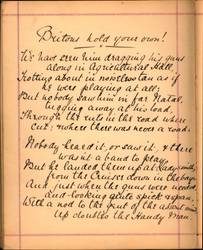 Britons hold your own!
We have seen him dragging his guns
along in Agricultural Hall,
Trotting about in noiseless tan as if
he were playing at all;
But nobody saw him in far Natal,
tugging away at his load,
Through the ruts in the road where
cut, & where there was never a road.
Nobody heard it, or saw it, & there
wasn't a band to play,
But he landed them up at Ladysmith,
from the Cruiser down in the bay
And just when the guns were needed
and looking quite spick & span,
With a nod to the rest of the
up doubles the Handy Man.